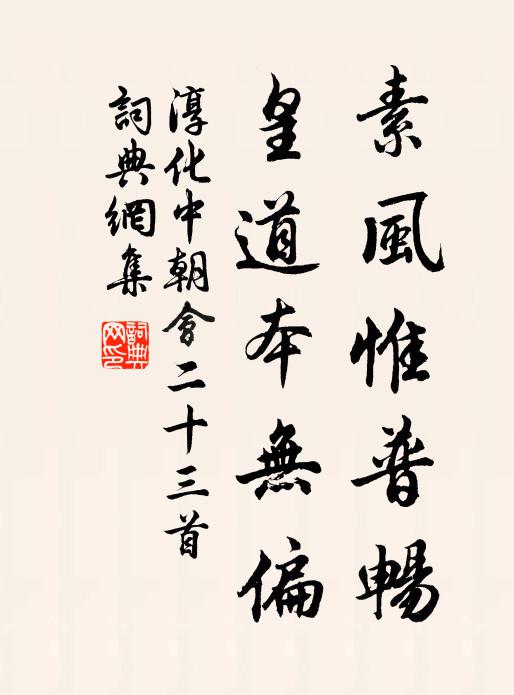 素風惟普暢
皇道本無偏
淳化中朝會二十三首
詞典網集
詞典網印